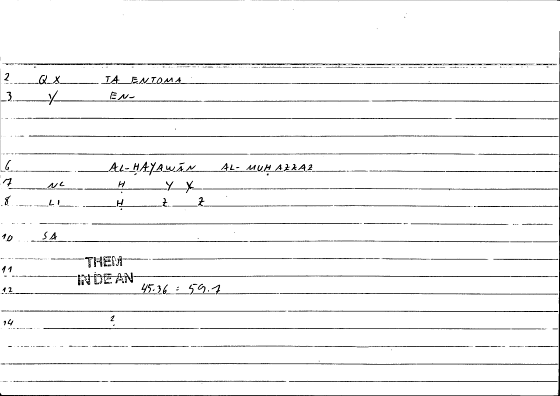 2 QX TA ENTOMA
3 Y EN-
6 AL-ḤAYAWĀN AL-MUḤAZZAZ
7 NL H Y X
8 LI Ḥ Z Z
10 SA
11 THEM
IN DE AN
12 45.36 = 59.1
14 ?